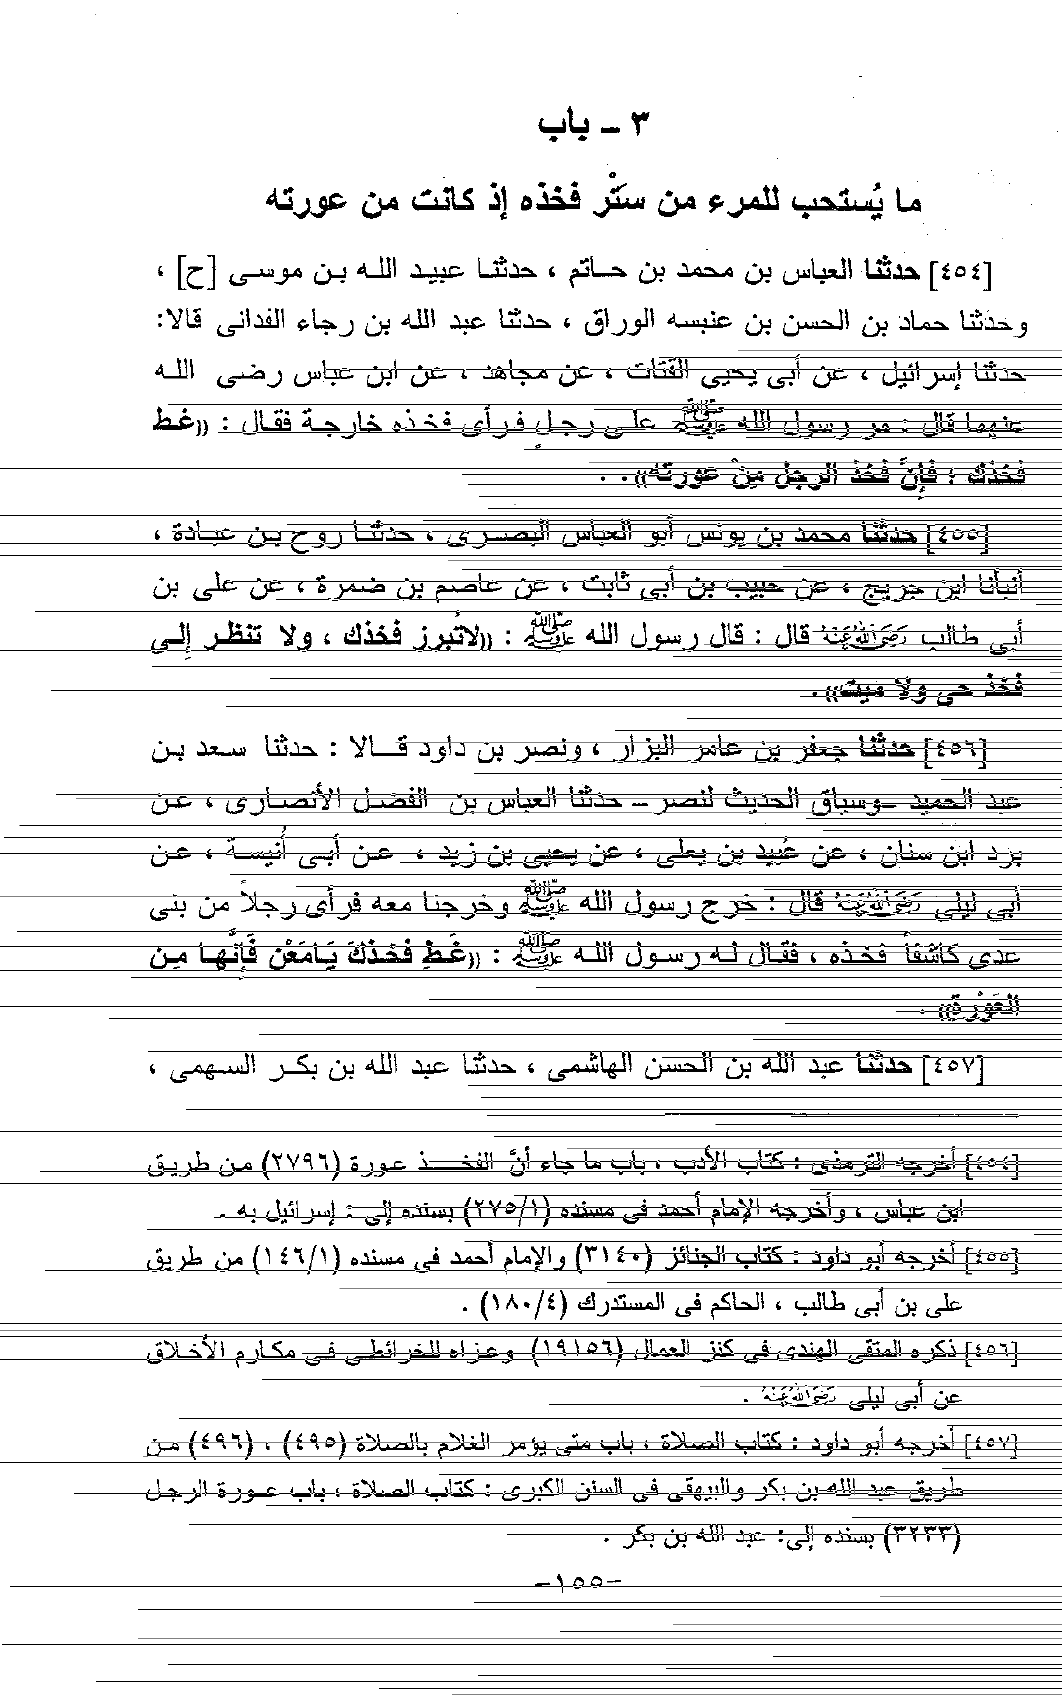 ٣ – باب
ما يُستحب للمرء من سَتْر فخذه إذ كانت من عورته
[٤٥٤] حدثنا العباس بن محمد بن حاتم ، حدثنا عبيد الله بن موسى [ح] ،
وحدثنا حماد بن الحسن بن عنبسه الوراق ، حدثنا عبد الله بن رجاء الفدانى قالا:
حدثنا إسرائيل ، عن أبى يحيى القتات ، عن مجاهد ، عن ابن عباس رضى الله
عنهما قال : مر رسول الله ﷺ على رجل فرأى فخذه خارجة فقال : ((غط
فخذك ؛ فإنَّ فخذ الرجل مِنْ عورته)). .
[٤٥٥] حدثنا محمد بن يونس أبو العباس البصرى ، حدثنا روح بن عبادة ،
أنبأنا ابن جريج ، عن حبيب بن أبى ثابت ، عن عاصم بن ضمرة ، عن على بن
أبى طالب رضي الله عنه قال : قال رسول الله ﷺ : ((لاتُبرز فخذك ، ولا تنظر إلى
فخذ حى ولا ميت)) .
[٤٥٦] حدثنا جعفر بن عامر البزار ، ونصر بن داود قالا : حدثنا سعد بن
عبد الحميد –وسياق الحديث لنصر – حدثنا العباس بن الفضل الأنصارى ، عن
برد ابن سنان ، عن عُبيد بن يعلى ، عن يحيى بن زيد ، عن أبى أُنيسة ، عن
أبى ليلى رضي الله عنه قال : خرج رسول الله ﷺ وخرجنا معه فرأى رجلاً من بنى
عدى كاشفاً فخذه ، فقال له رسول الله ﷺ : ((غَطِّ فَخذكَ يَامَعْن فَإنَّها من
العَوْرة)) .
[٤٥٧] حدثنا عبد الله بن الحسن الهاشمى ، حدثنا عبد الله بن بكر السهمى ،
[٤٥٤] أخرجه الترمذى : كتاب الأدب ، باب ما جاء أنَّ الفخذ عورة (٢٧٩٦) من طريق
ابن عباس ، وأخرجه الإمام أحمد فى مسنده (٢٧٥/١) بسنده إلى : إسرائيل به .
[٤٥٥] أخرجه أبو داود : كتاب الجنائز (٣١٤٠) والإمام أحمد فى مسنده (١٤٦/١) من طريق
على بن أبى طالب ، الحاكم فى المستدرك (١٨٠/٤) .
[٤٥٦] ذكره المتقى الهندى فى كنز العمال (١٩١٥٦) وعزاه للخرائطى فى مكارم الأخلاق
عن أبى ليلى رضي الله عنه .
[٤٥٧] أخرجه أبو داود : كتاب الصلاة ، باب متى يؤمر الغلام بالصلاة (٤٩٥) ، (٤٩٦) من
طريق عبد الله بن بكر والبيهقى فى السنن الكبرى : كتاب الصلاة ، باب عورة الرجل
(٣٢٣٣) بسنده إلى: عبد الله بن بكر .
–١٥٥–